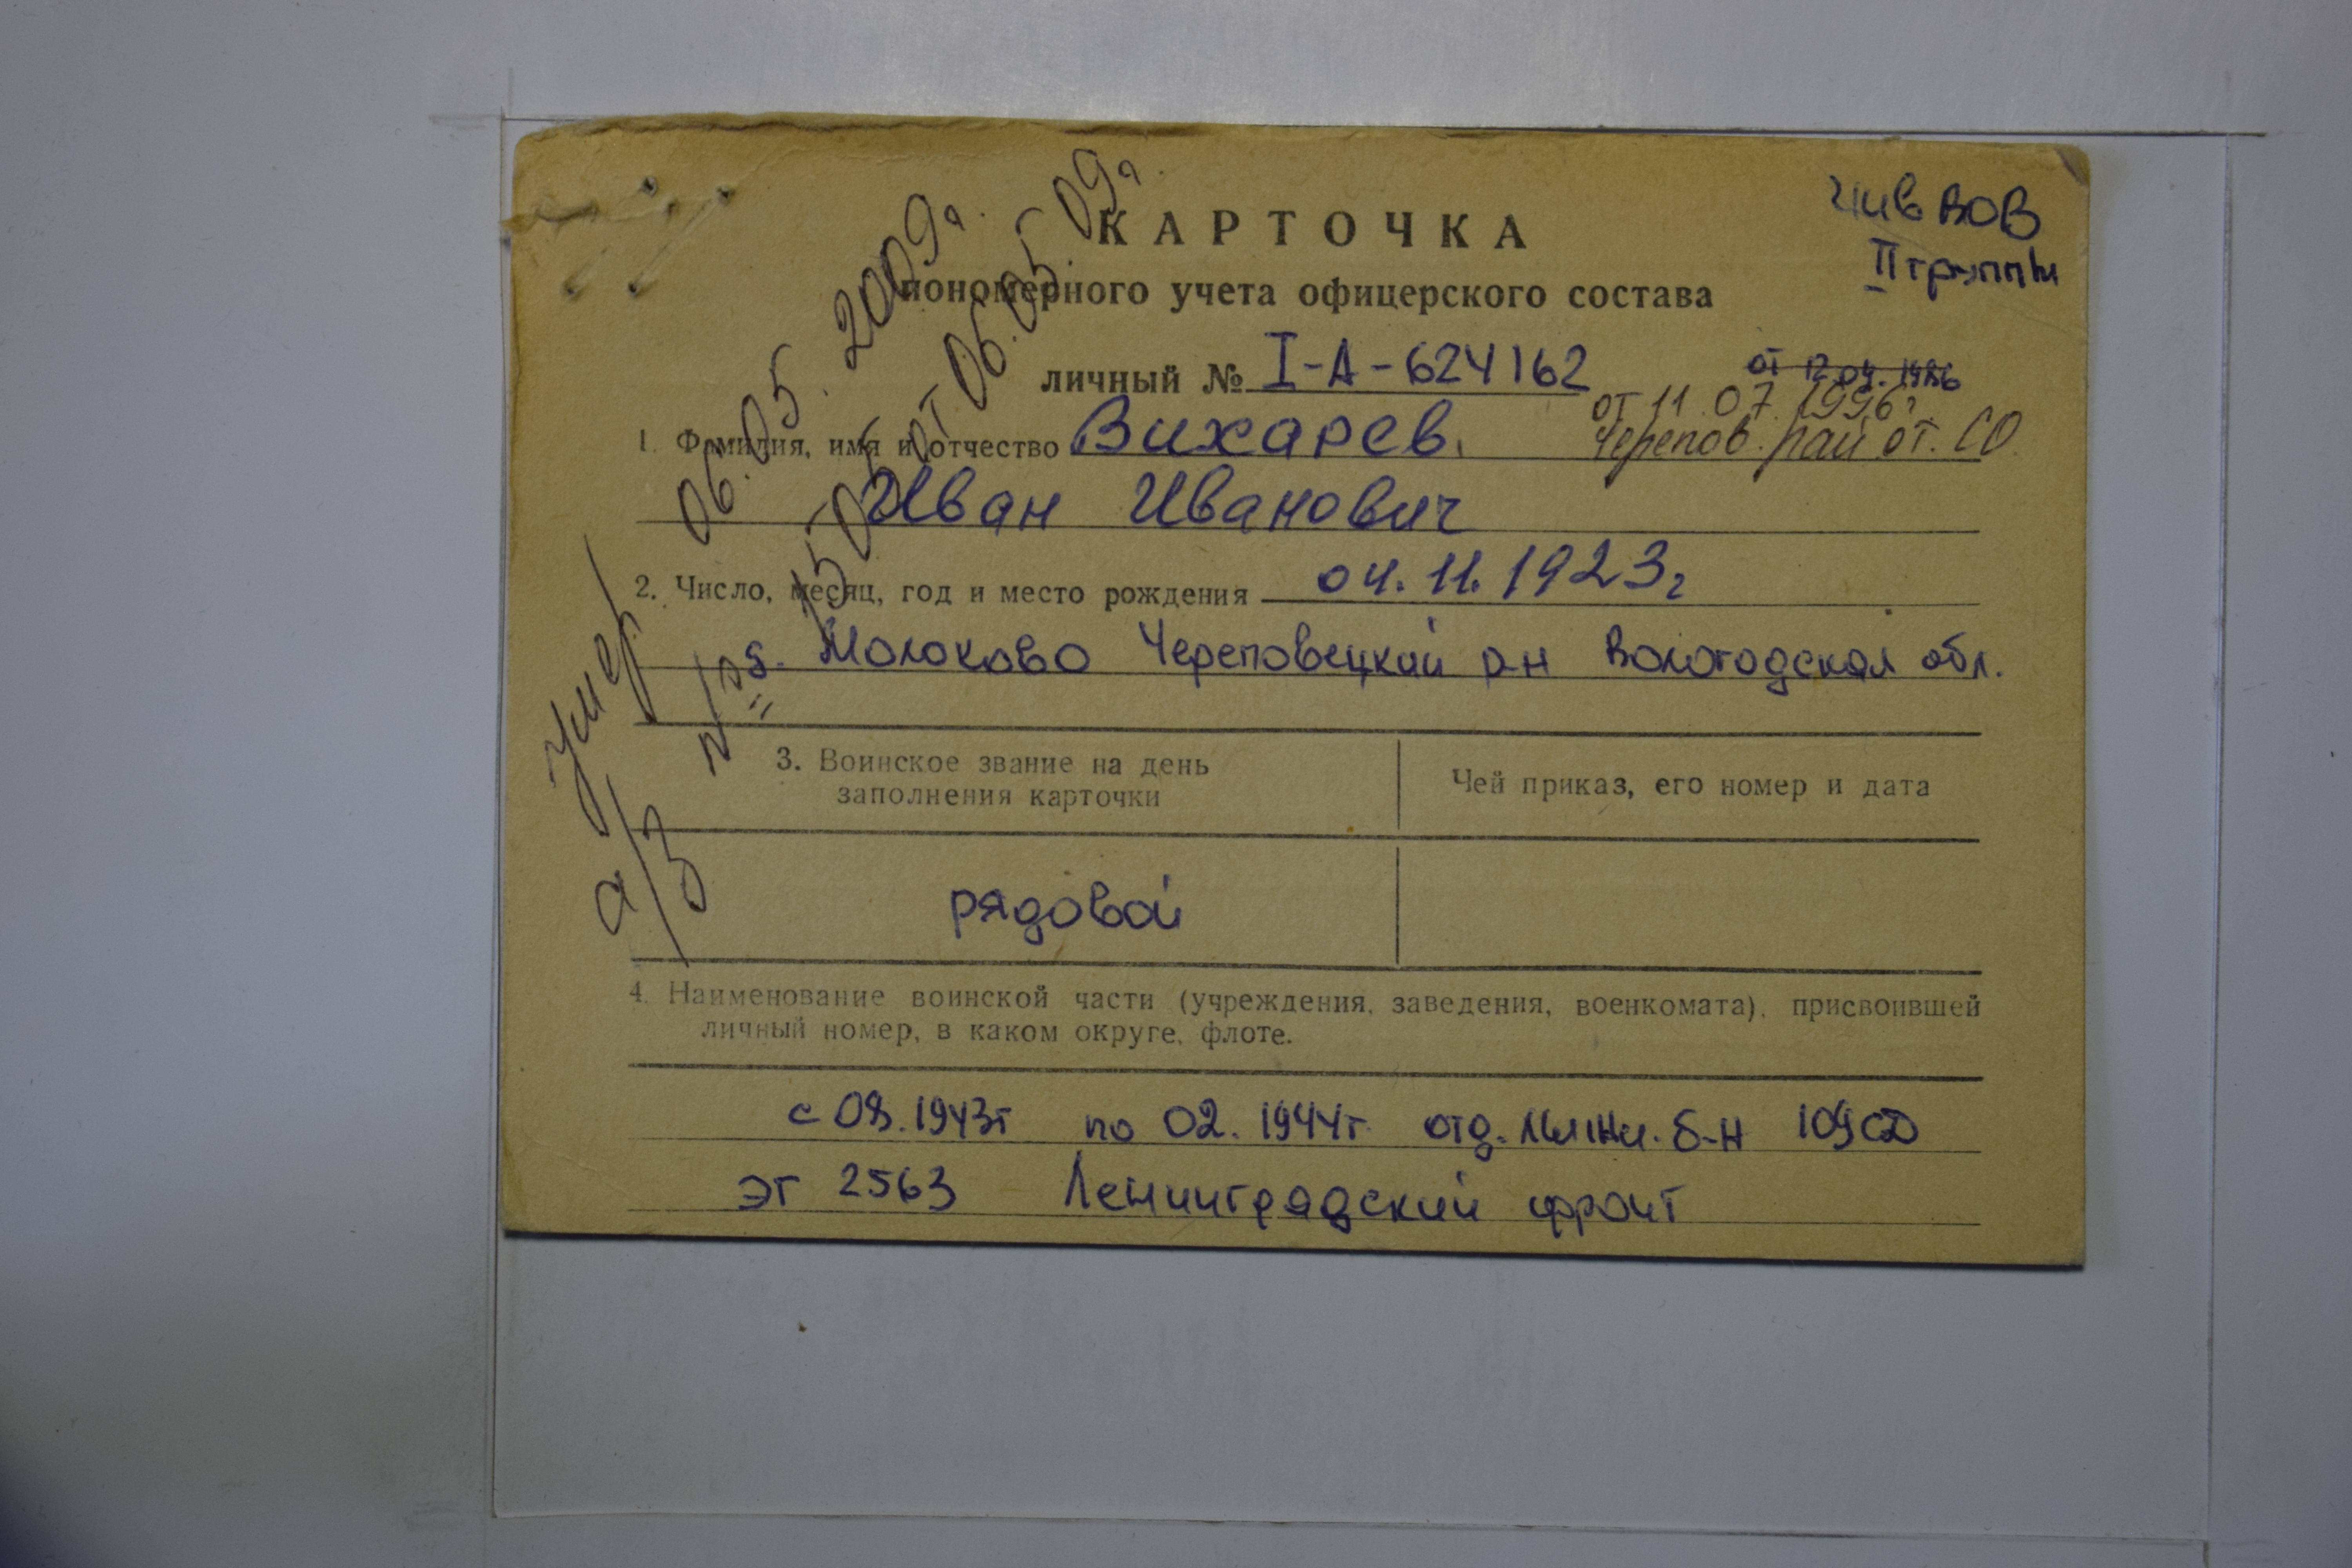 КАРТОЧКА
пономерного учета офицерского состава
инв ВОВ
II группы
личный № I-А-624162
от 12.04.1986
от 11.07.1996г
Черепов. рай от. СО
1. Фамилия, имя и отчество Вихарев.
Иван Иванович
2. Число, месяц, год и место рождения 04.11.1923г
д. Молоково Череповецкий р-н Вологодская обл.
3. Воинское звание на день
заполнения карточки
Чей приказ, его номер и дата
рядовой
4. Наименование воинской части (учреждения, заведения, военкомата), присвоившей
личный номер, в каком округе, флоте.
с 08.1943г по 02.1944г отд. лыжн. б-н 109 СД
ЭГ 2563 Ленинградский фронт
умер 06.05.2009г.
а/з от 06.05.09г.